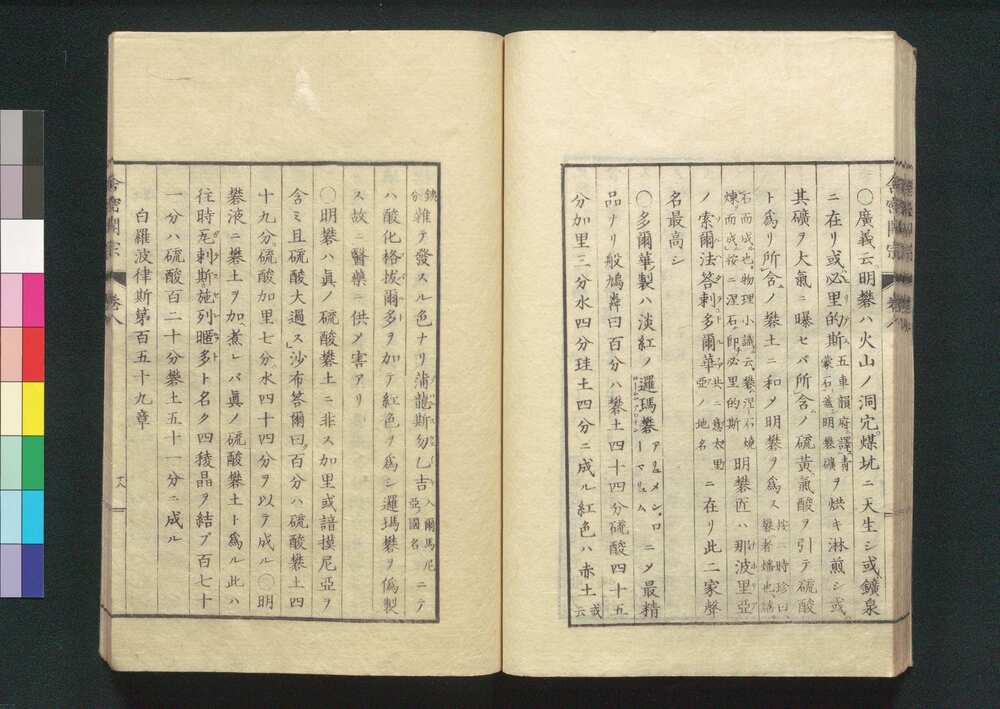 〇廣義云明礬ハ火山ノ洞宂煤坑ニ天生シ或鑛泉
ニ在リ或必里的斯五車韻府譯青蒙石養明礬礦ヲ烘キ淋煎シ或
其礦ヲ大氣ニ曝セバ所含ノ硫黄氣酸ヲ引テ硫酸
ト為リ所含ノ礬土ニ和メ明礬ヲ為ス按ニ時珍曰礬者燔也
石而成也物理小識云礬涅石燒煉而成按ニ涅石即必里的斯明礬匠ハ那波里亞
ノ索爾法答剌多爾華共ニ意太里亞ノ地名ニ在リ此二家聲
名最高シ
〇多爾華製ハ淡紅ノ邏瑪礬アリュメン、ローマニュムニメ最精
品ナリ般鳩犇曰百分ハ礬土四十四分硫酸四十五
分加里三分水四分珪土四分ニ成ル紅色ハ赤土或云
鉄分雜テ發スル色ナリ蒲龍斯勿乙吉入爾馬尼亞國名ニテ
ハ酸化格拔爾多ヲ加テ紅色ヲ為シ邏瑪礬ヲ偽製
ス故ニ醫藥ニ供メ害アリ
〇明礬ハ眞ノ硫酸礬土ニ非ス加里或諳摸尼亞ヲ
含ミ且硫酸大過ス沙布答爾曰百分ハ硫酸礬土四
十九分硫酸加里七分水四十四分ヲ以テ成ル〇明
礬液ニ礬土ヲ加煮レバ眞ノ硫酸礬土ト為ル此ハ
往時瓦剌斯施列暱多ト名ク四稜晶ヲ結ブ百七十
一分ハ硫酸百二十分礬土五十一分ニ成ル
白羅波律斯第百五十九章
舎密開宗
卷八